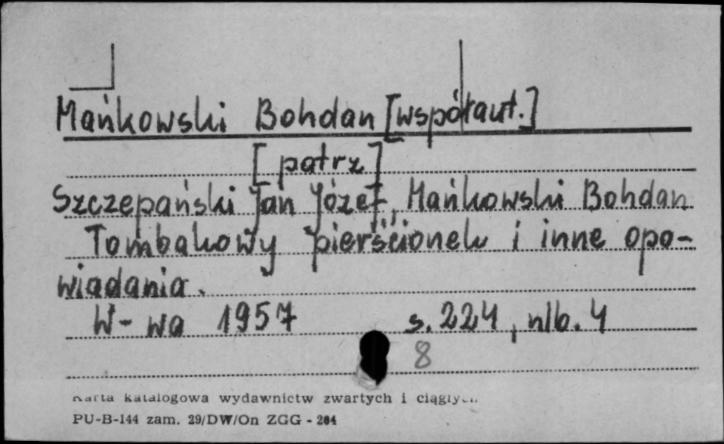 Mańkowski Bohdan [współaut.]
[patrz]
Szczepański Jan Józef, Mańkowski Bohdan
Tombakowy pierścionek i inne opo-
wiadania.
W-wa 1957 s. 224, nlb. 4
8
Karta katalogowa wydawnictw zwartych i ciągłych
PU-B-144 zam. 29/DW/On ZGG - 204